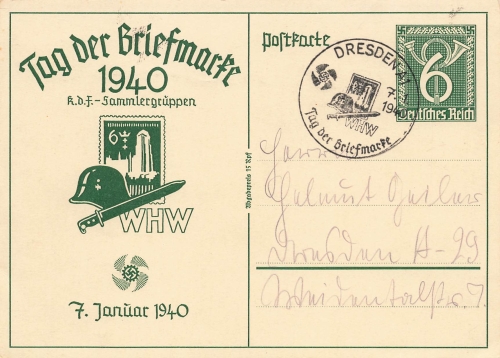 Tag der Briefmarke
1940
K.d.F.-Sammlergruppen
6
WHW
7. Januar 1940
Abgabepreis 15 Rpf
Postkarte
6
Deutsches Reich
DRESDEN-A
7.
194
WHW
Tag der Briefmarke
Herrn
Helmut Geiler
Dresden A-29
Weidentalstr. 7.